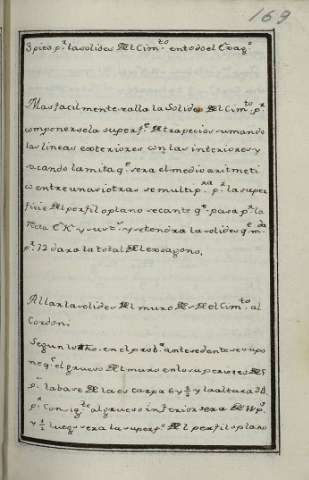 169
3 pies p.ª la solidez del Cim.to en todo el Exag.º
Mas facilmente ralla la Solidez del Cim.to p.r
componerse la superf.e de trapecios sumando
las lineas exteriores con las interiores y
sacando la mitad q.e sera el medio aritmeti
co entre unas i otras se multip.ra p.r la super
ficie del perfil o plano secante q.e pasa p.r la
recta CK y se tendra la solidez q.
p.r 12 dara la total del exsagono,
Allar la solidez del muro del Cim.to al
Cordon.
Segun lo dho. en el prob.ª antesedente se supo
ne q.e el grueso del muro en lo superior es de 5
p.s la base de la escarpa 6 y ½ y la altura
p.s con q.e el grueso inferior sera de p.s
y ½ luego sera la superf.e del perfil o plano